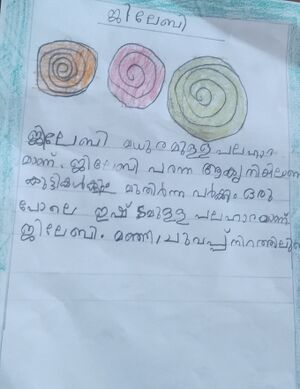 ജിലേബി
ജിലേബി മധുരമുള്ള പലഹാര
മാണ്. ജിലേബി പരന്ന ആകൃതിയിലാണ്
കുട്ടികൾക്കും മുതിർന്ന വർക്കും ഒരു
പോലെ ഇഷ്ടമുള്ള പലഹാരമാണ്
ജിലേബി. മഞ്ഞ, ചുവപ്പ് നിറത്തിലു